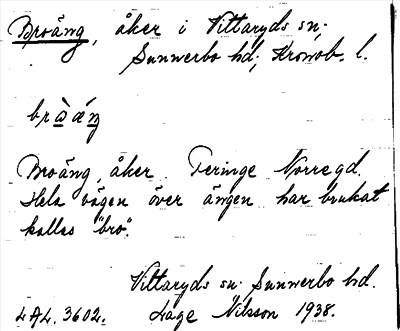 Broäng, åker i Vittaryds sn;
Sunnerbo hd; Kronob. l.
Broäng, åker. Feringe Norregd.
Hela vägen över ängen har brukat
kallas "bro".
Vittaryds sn. Sunnerbo hd.
LAL. 3602. Lage Nilsson 1938.